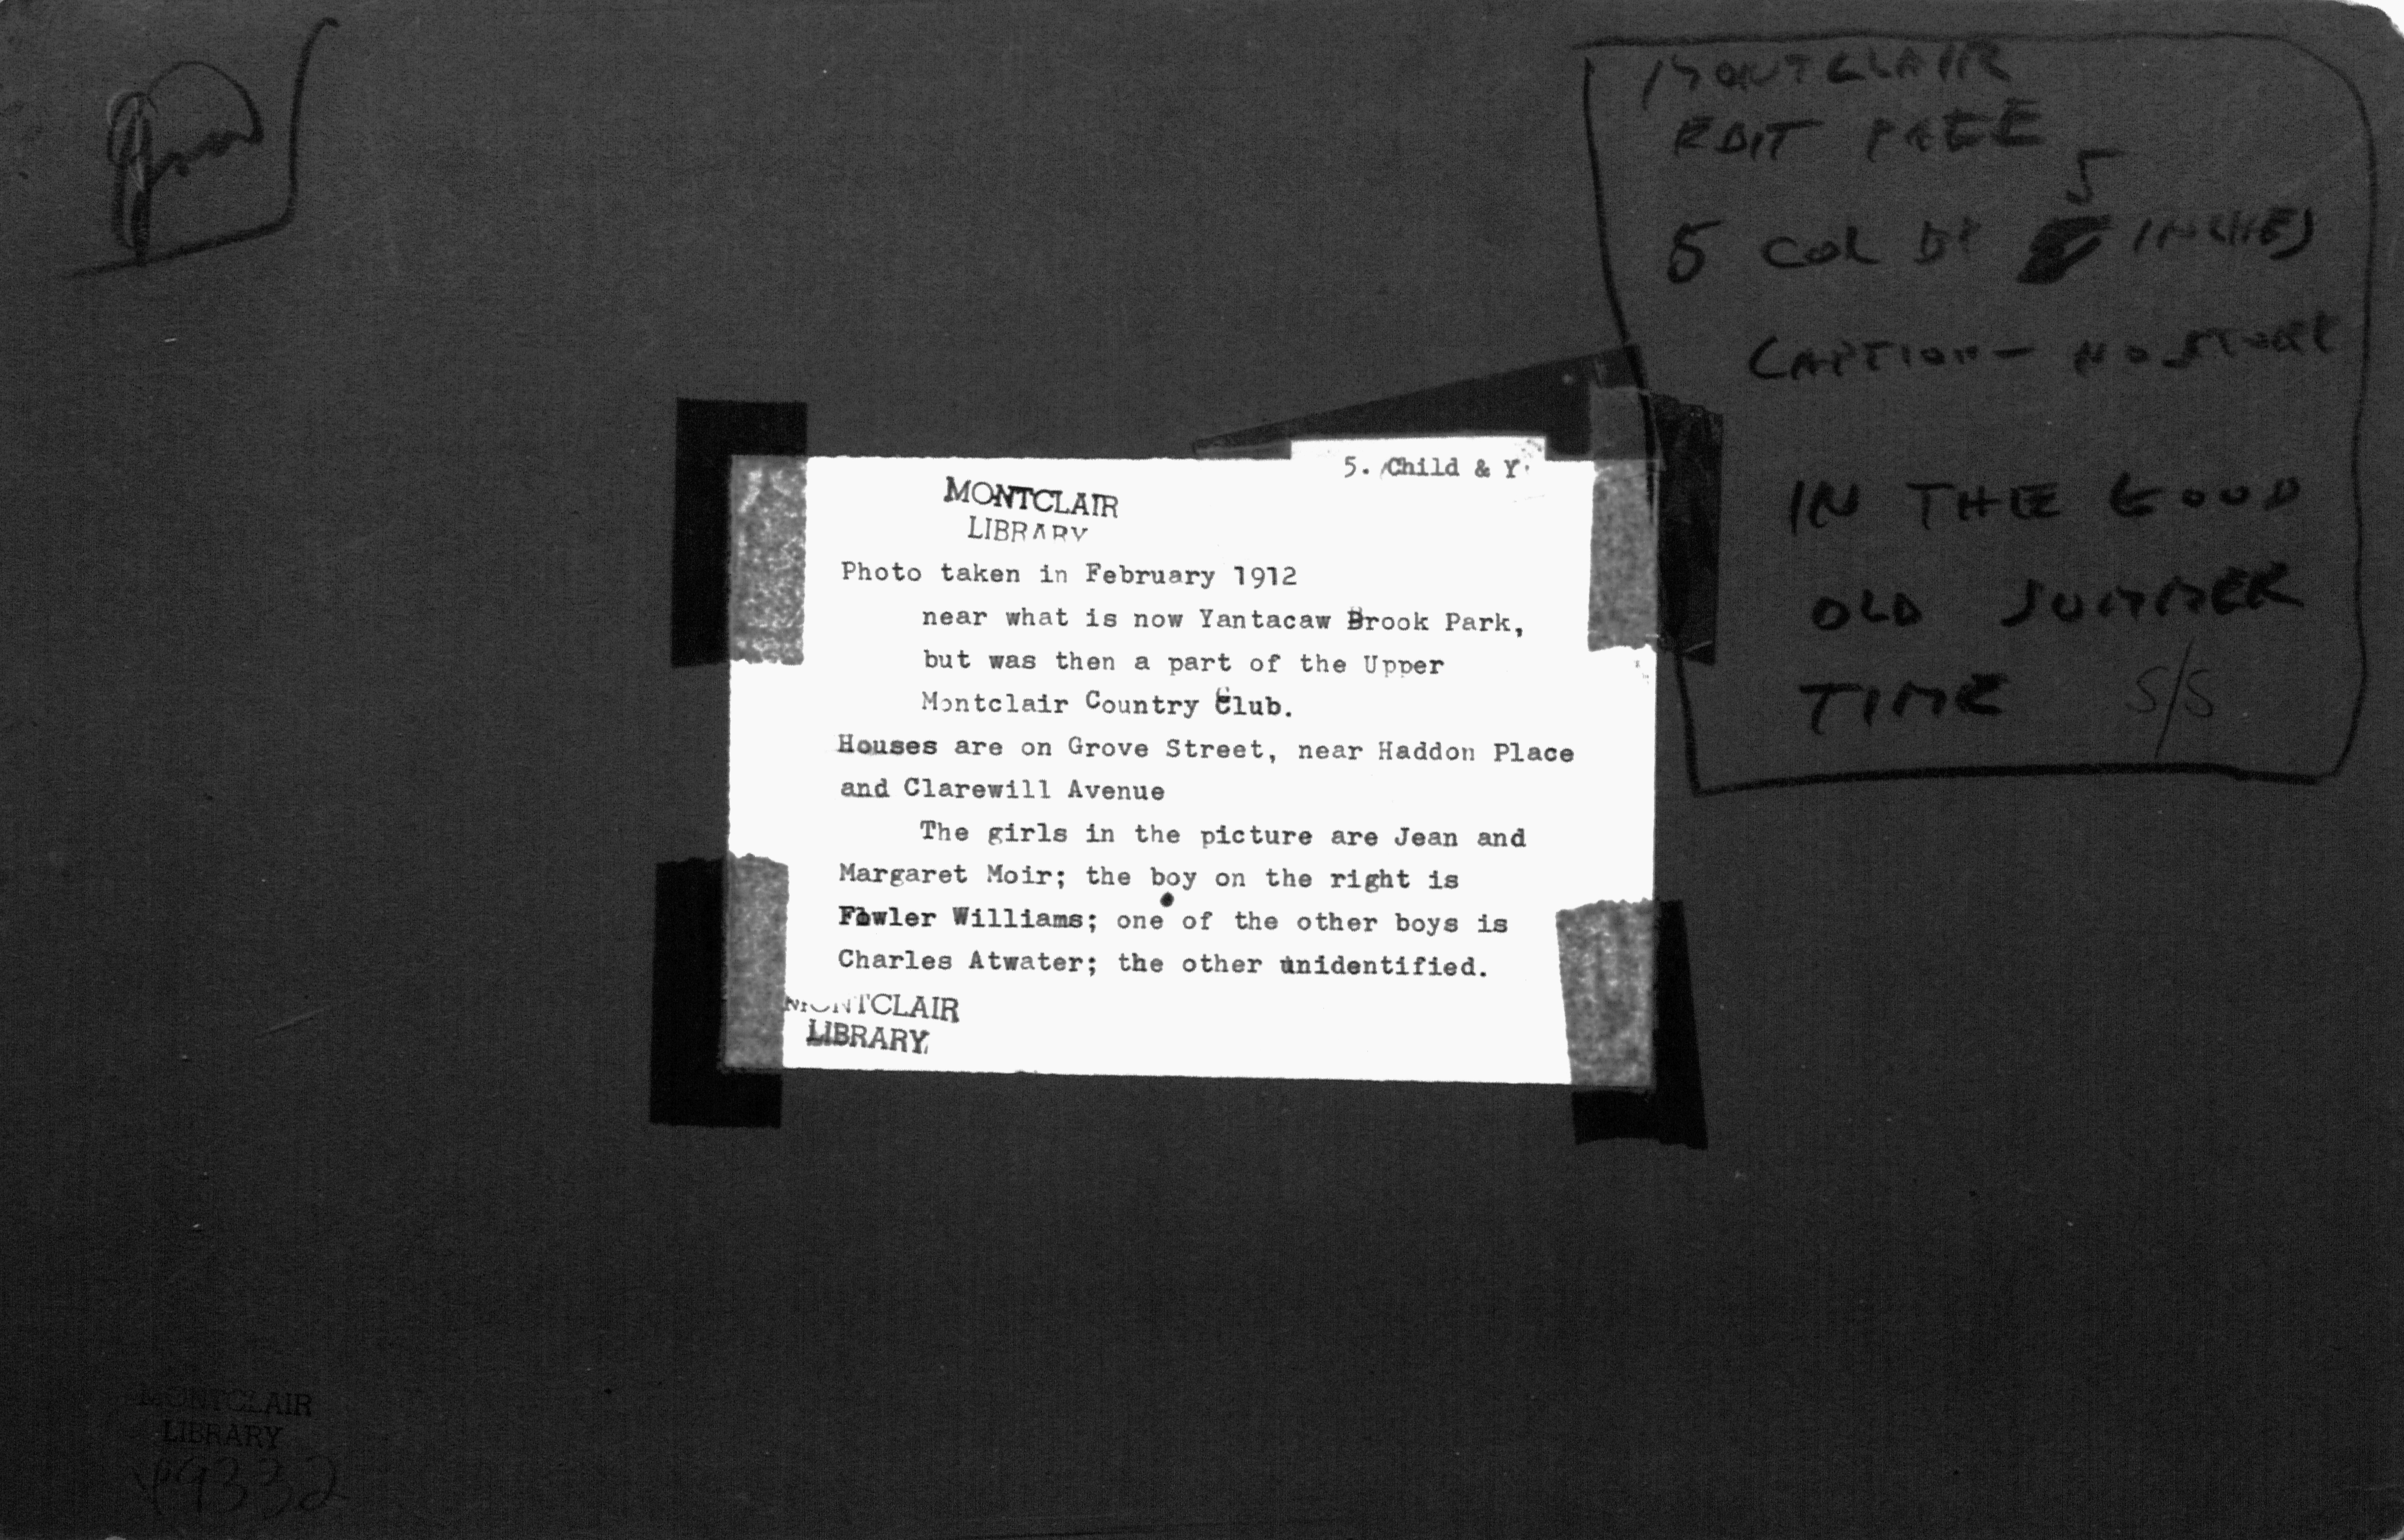 MONTCLAIR
EDIT PAGE
5
5 COL BY INCHES
CAPTION - NO STORY
IN THE GOOD
OLD SUMMER
TIME S/S
5. Child & Y.
MONTCLAIR
LIBRARY
Photo taken in February 1912
near what is now Yantacaw Brook Park,
but was then a part of the Upper
Montclair Country Club.
Houses are on Grove Street, near Haddon Place
and Clarewill Avenue
The girls in the picture are Jean and
Margaret Moir; the boy on the right is
Fowler Williams; one of the other boys is
Charles Atwater; the other unidentified.
MONTCLAIR
LIBRARY
MONTCLAIR
LIBRARY